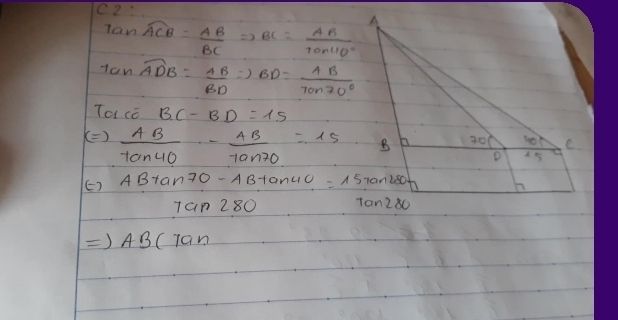 C2:
tan ACB = AB/BC => BC = AB/tan40°
tan ADB = AB/BD => BD = AB/tan70°
Ta có BC - BD = 15
(=) AB/tan40 - AB/tan70 = 15
(=) ABtan70 - ABtan40/tan280 = 15tan280/tan280
=) AB(tan
A
B
70
D
40
C
15